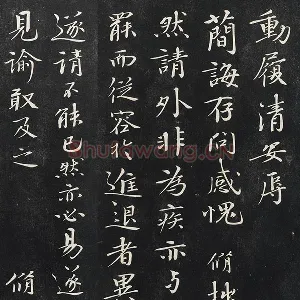 動履清安辱
簡誨存問感愧 脩拙
然請外非為疾亦与
罷而從容於進退者異
遂請不能已然亦必易遂
見諭敢及之 脩